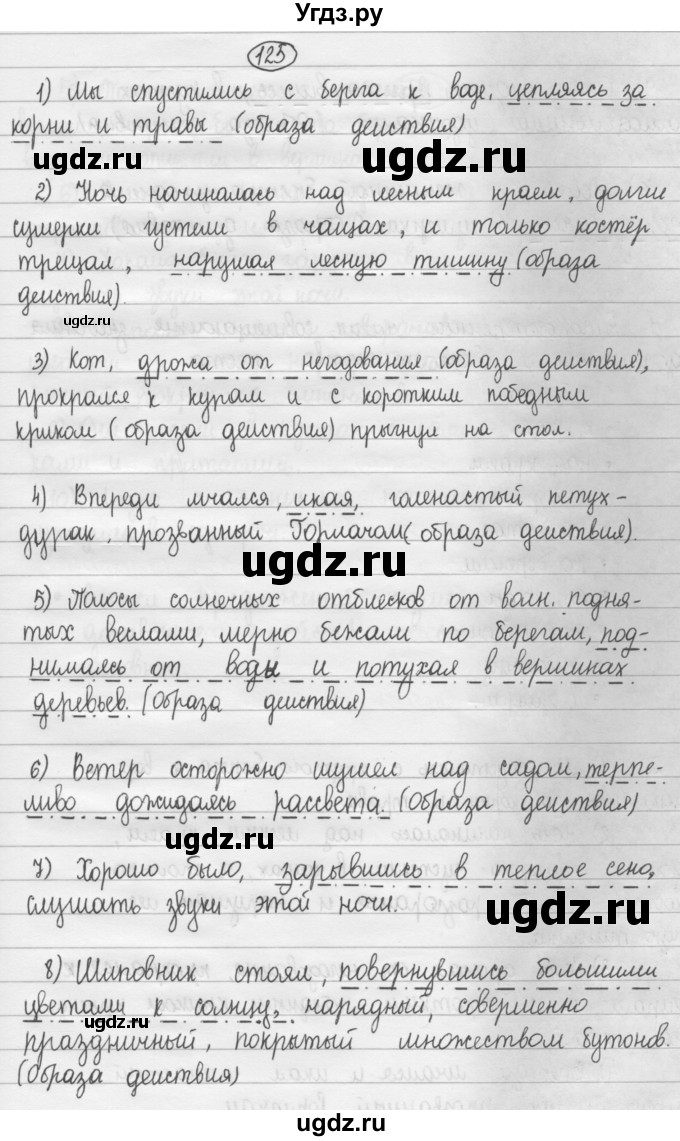 Угдз.ру
125
1) Мы спустились с берега к воде, цепляясь за
корни и травы (образа действия)
ugdz.ru
ugdz.ru
2) Ночь начиналась над лесным краем, долгие
сумерки густели в чащах, и только костёр
трещал, нарушая лесную тишину (образа
действия).
ugdz.ru
3) Кот, дрожа от негодования (образа действия),
прокрался к курам и с коротким победным
криком (образа действия) прыгнул на стол.
4) Впереди мчался, икая, голенастый петух-
дурак, прозванный Горлачом (образа действия).
ugdz.ru
5) Полосы солнечных отблесков от волн, подня-
тых веслами, мерно бежали по берегам, под-
нимаясь от воды и потухая в вершинах
деревьев. (Образа действия)
6) Ветер осторожно шумел над садом, терпе-
ливо дожидаясь рассвета. (Образа действия)
ugdz.ru
7) Хорошо было, зарывшись в теплое сено,
слушать звуки этой ночи.
ugdz.ru
8) Шиповник стоял, повернувшись большими
цветами к солнцу, нарядный, совершенно
ugdz.ru
праздничный, покрытый множеством бутонов.
(Образа действия)
ugdz.ru